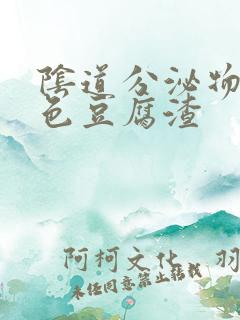 陰道分泌物
色豆腐渣
阿柯文化 羽
未经同意禁止转载